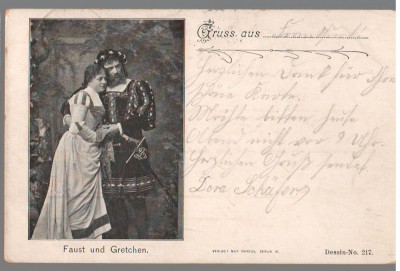 Gruss aus
Herzlichen Dank für Ihre
Karte.
Möchte bitten heute
Abend nicht vor 9 Uhr.
Herzlichen Gruß sendet
Dora Schäfer
Faust und Gretchen.
BERLIN
Dessin-No. 217.